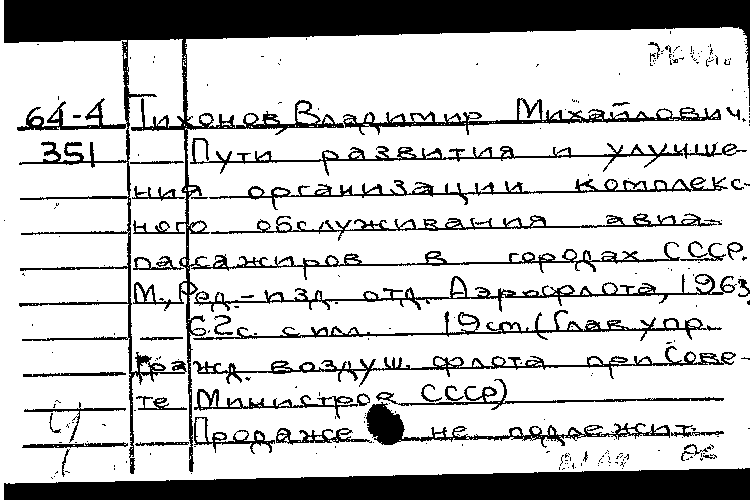 64-4 Тихонов, Владимир Михайлович.
351 Пути развития и улучше-
ния организации комплекс-
ного обслуживания авиа-
пассажиров в городах СССР.
М., Ред.-изд. отд. Аэрофлота, 1963.
62с. с илл. 19см. (Глав. упр.
гражд. воздуш. флота при Сове-
те Министров СССР)
Продаже не подлежит